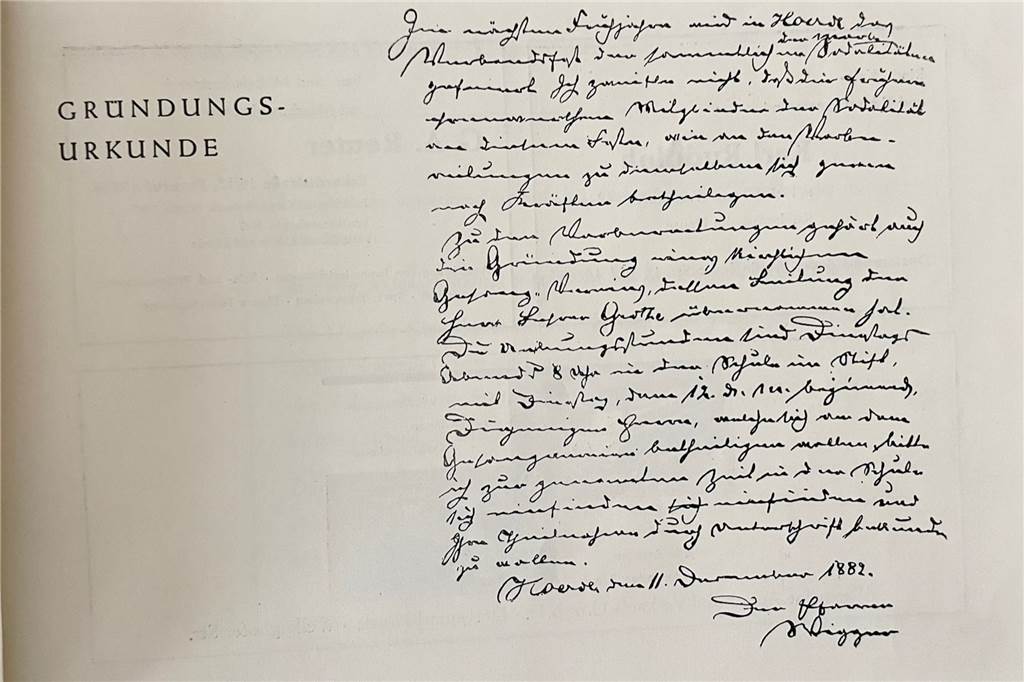 GRÜNDUNGS-
URKUNDE
Im nächsten Frühjahre wird in Hoerde das
Verbandsfest der sämmtlichen Sodalitäten
der Mark
gefeiert. Ich zweifle nicht, daß die früheren
ehrenwerthen Mitglieder der Sodalität
an diesem Feste, wie an den Vorbe-
reitungen zu demselben sich gerne
nach Kräften betheiligen.
Zu den Vorbereitungen gehört auch
die Gründung eines kirchlichen
Gesang-Vereins, dessen Leitung der
Herr Lehrer Grothe übernommen hat.
Die Uebungsstunden sind Dienstags
Abends 8 Uhr in der Schule im Stift,
mit Dienstag, dem 12. ds. M. beginnend.
Diejenigen Herren, welche sich an dem
Gesangverein betheiligen wollen, bitte
ich zur genannten Zeit in der Schule
sich einfinden sich einfinden und
Ihre Theilnahme durch Unterschrift bekunden
zu wollen.
Hoerde, den 11. Dezember 1882.
Der Pfarrer
Wigger